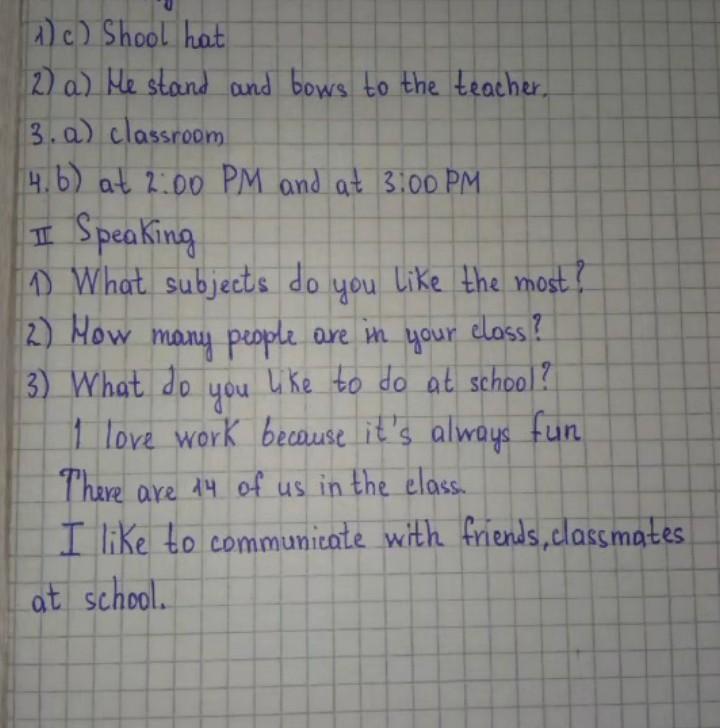 1) c) Shool hat
2) a) He stand and bows to the teacher.
3. a) classroom
4. b) at 2:00 PM and at 3:00 PM
II Speaking
1) What subjects do you like the most?
2) How many people are in your class?
3) What do you like to do at school?
I love work because it's always fun
There are 14 of us in the class.
I like to communicate with friends, classmates
at school.